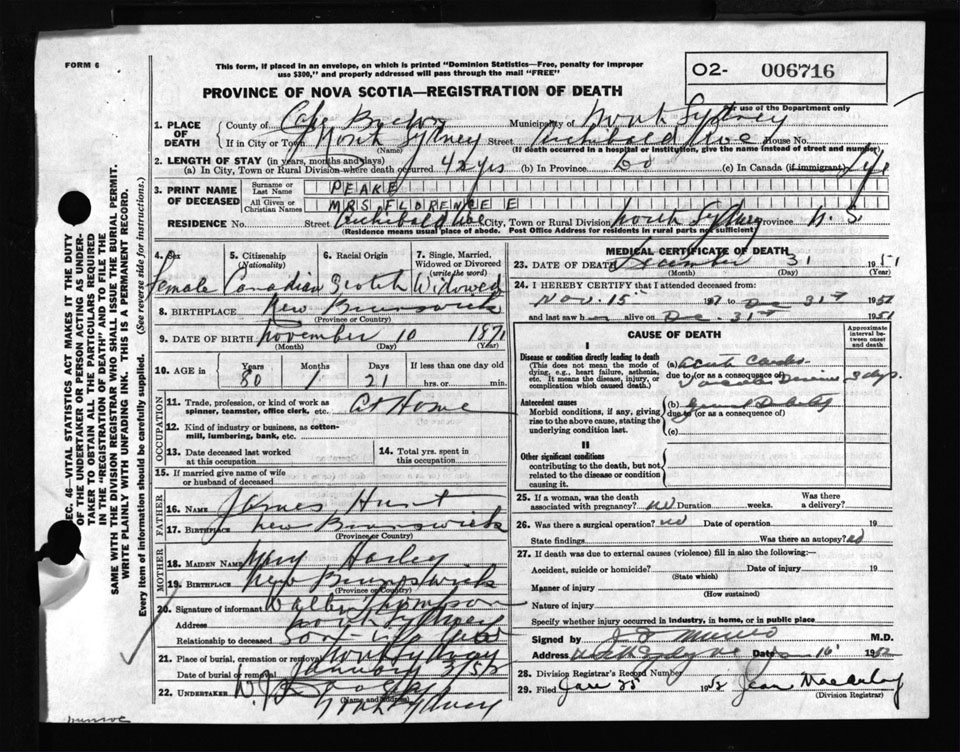 FORM 6
This form, if placed in an envelope, on which is printed "Dominion Statistics—Free, penalty for improper
use $300," and properly addressed will pass through the mail "FREE"
02- 006716
For use of the Department only
PROVINCE OF NOVA SCOTIA—REGISTRATION OF DEATH
1. PLACE OF DEATH
County of Cape Breton Municipality of North Sydney
If in City or Town North Sydney Street Archibald Ave House No.
(Name) (If death occurred in a hospital or institution, give the name instead of street and number)
2. LENGTH OF STAY (in years, months and days)
(a) In City, Town or Rural Division where death occurred 42 yrs (b) In Province Do (c) In Canada (if immigrant) life
3. PRINT NAME OF DECEASED
Surname or Last Name PEAKE
All Given or Christian Names MRS FLORENCE E
RESIDENCE No. Street Archibald Ave City, Town or Rural Division North Sydney Province N. S.
(Residence means usual place of abode. Post Office Address for residents in rural parts not sufficient)
4. Sex Female
5. Citizenship (Nationality) Canadian
6. Racial Origin Scotch
7. Single, Married, Widowed or Divorced (write the word) Widowed
8. BIRTHPLACE New Brunswick
(Province or Country)
9. DATE OF BIRTH November 10 1871
(Month) (Day) (Year)
10. AGE in Years 80 Months 1 Days 21 If less than one day old hrs. or min.
OCCUPATION
11. Trade, profession, or kind of work as spinner, teamster, office clerk, etc. At Home
12. Kind of industry or business, as cotton-mill, lumbering, bank, etc.
13. Date deceased last worked at this occupation
14. Total yrs. spent in this occupation
15. If married give name of wife or husband of deceased
FATHER
16. NAME James Hunt
17. BIRTHPLACE New Brunswick
(Province or Country)
MOTHER
18. MAIDEN NAME Mary
19. BIRTHPLACE New Brunswick
(Province or Country)
20. Signature of informant Walter
Address North Sydney
Relationship to deceased Son-in-law
21. Place of burial, cremation or removal North Sydney
Date of burial or removal January 3/52
22. UNDERTAKER W. J.
(Name and address)
North Sydney
MEDICAL CERTIFICATE OF DEATH
23. DATE OF DEATH December 31 1951
(Month) (Day) (Year)
24. I HEREBY CERTIFY that I attended deceased from:
Nov. 15 to Dec 31st 1951
and last saw h alive on Dec. 31st 1951
CAUSE OF DEATH
Approximate interval between onset and death
I
Disease or condition directly leading to death
(This does not mean the mode of dying, e.g., heart failure, asthenia, etc. It means the disease, injury, or complication which caused death.)
(a) Acute Cardio-
due to (or as a consequence of)
Vascular 3 days.
Antecedent causes
Morbid conditions, if any, giving rise to the above cause, stating the underlying condition last.
(b) General Debility
due to (or as a consequence of)
(c)
II
Other significant conditions
contributing to the death, but not related to the disease or condition causing it.
25. If a woman, was the death associated with pregnancy? No Duration weeks. Was there a delivery?
26. Was there a surgical operation? no Date of operation 19
State findings Was there an autopsy? no
27. If death was due to external causes (violence) fill in also the following:—
Accident, suicide or homicide? Date of injury 19
(State which)
Manner of injury
(How sustained)
Nature of injury
Specify whether injury occurred in industry, in home, or in public place
Signed by Munro M.D.
Address North Sydney Date 16 1952
28. Division Registrar's Record Number
29. Filed Jan 25 1952 Jean
(Division Registrar)
SEC. 46—VITAL STATISTICS ACT MAKES IT THE DUTY
OF THE UNDERTAKER OR PERSON ACTING AS UNDER-
TAKER TO OBTAIN ALL THE PARTICULARS REQUIRED
IN THE "REGISTRATION OF DEATH" AND TO FILE THE
SAME WITH THE DIVISION REGISTRAR WHO SHALL ISSUE THE BURIAL PERMIT.
WRITE PLAINLY WITH UNFADING INK. THIS IS A PERMANENT RECORD.
Every item of information should be carefully supplied. (See reverse side for instructions.)
munroe